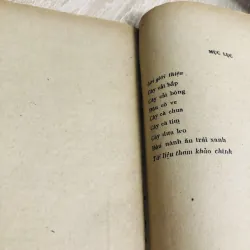 MỤC LỤC
Lời giới thiệu
Cây cải bắp
Cây cải bông
Đậu cô ve
Cây cà chua
Cây cà tím
Cây dưa leo
Đậu nành ăn trái xanh
Tài liệu tham khảo chính